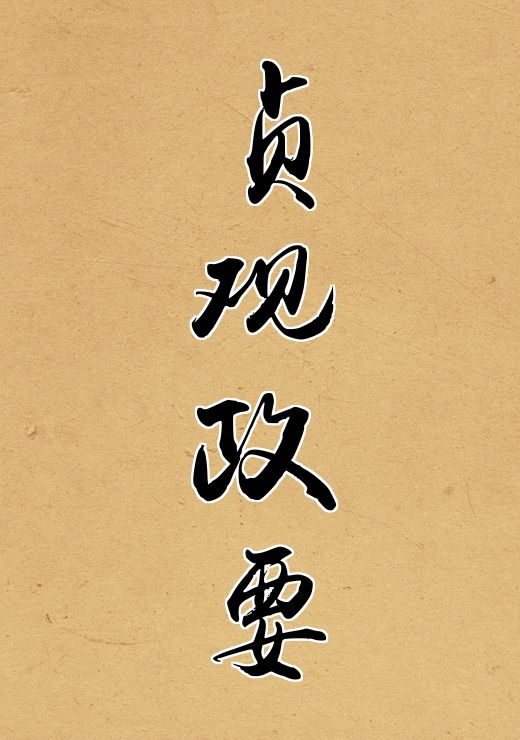 贞观政要